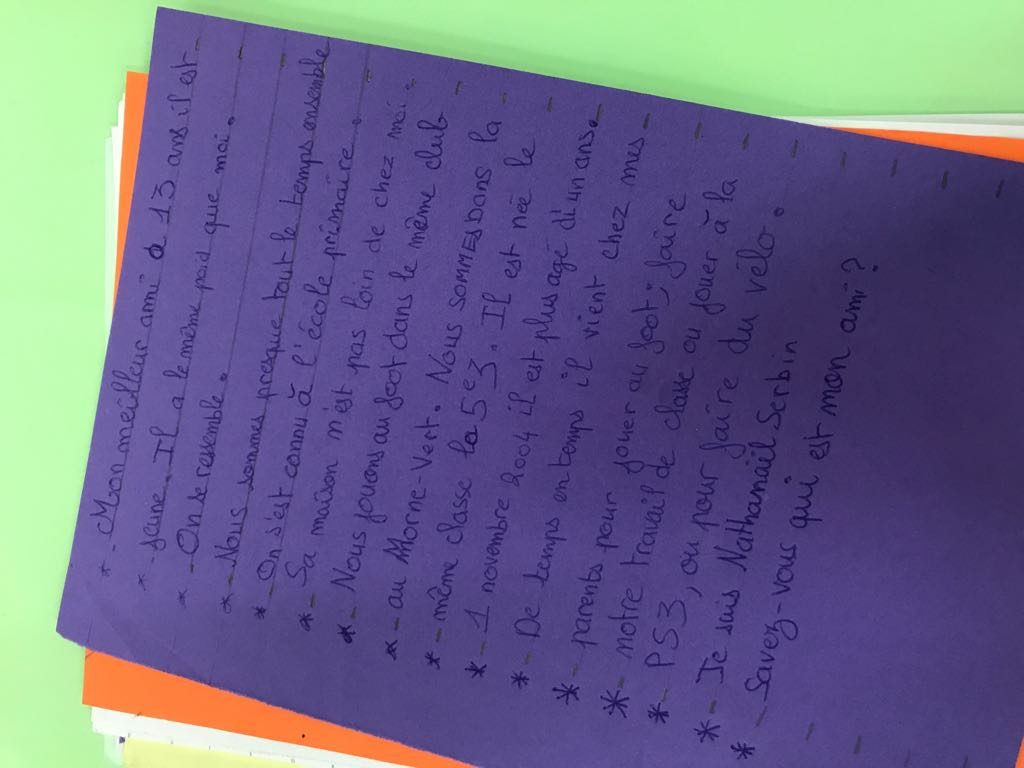 * - Mon meilleur ami a 13 ans il est
* - jaune. Il a le même poid que moi.
* - On se ressemble.
* - Nous sommes presque tout le temps ensemble
* - On s'est connu à l'école primaire.
* - Sa maison n'est pas loin de chez moi.
* - Nous jouons au foot dans le même club
* - au Morne-Vert. Nous SOMMES Dans la
* - même classe la 5e3. Il est née le
* - 1 novembre 2004 il est plus agé d'un ans.
* - De temps en temps il vient chez mes
* - parents pour jouer au foot, faire
* - notre travail de classe ou jouer à la
* - PS3, ou pour faire du vélo.
* - Je suis Nathanaël Serbin
* - Savez-vous qui est mon ami?